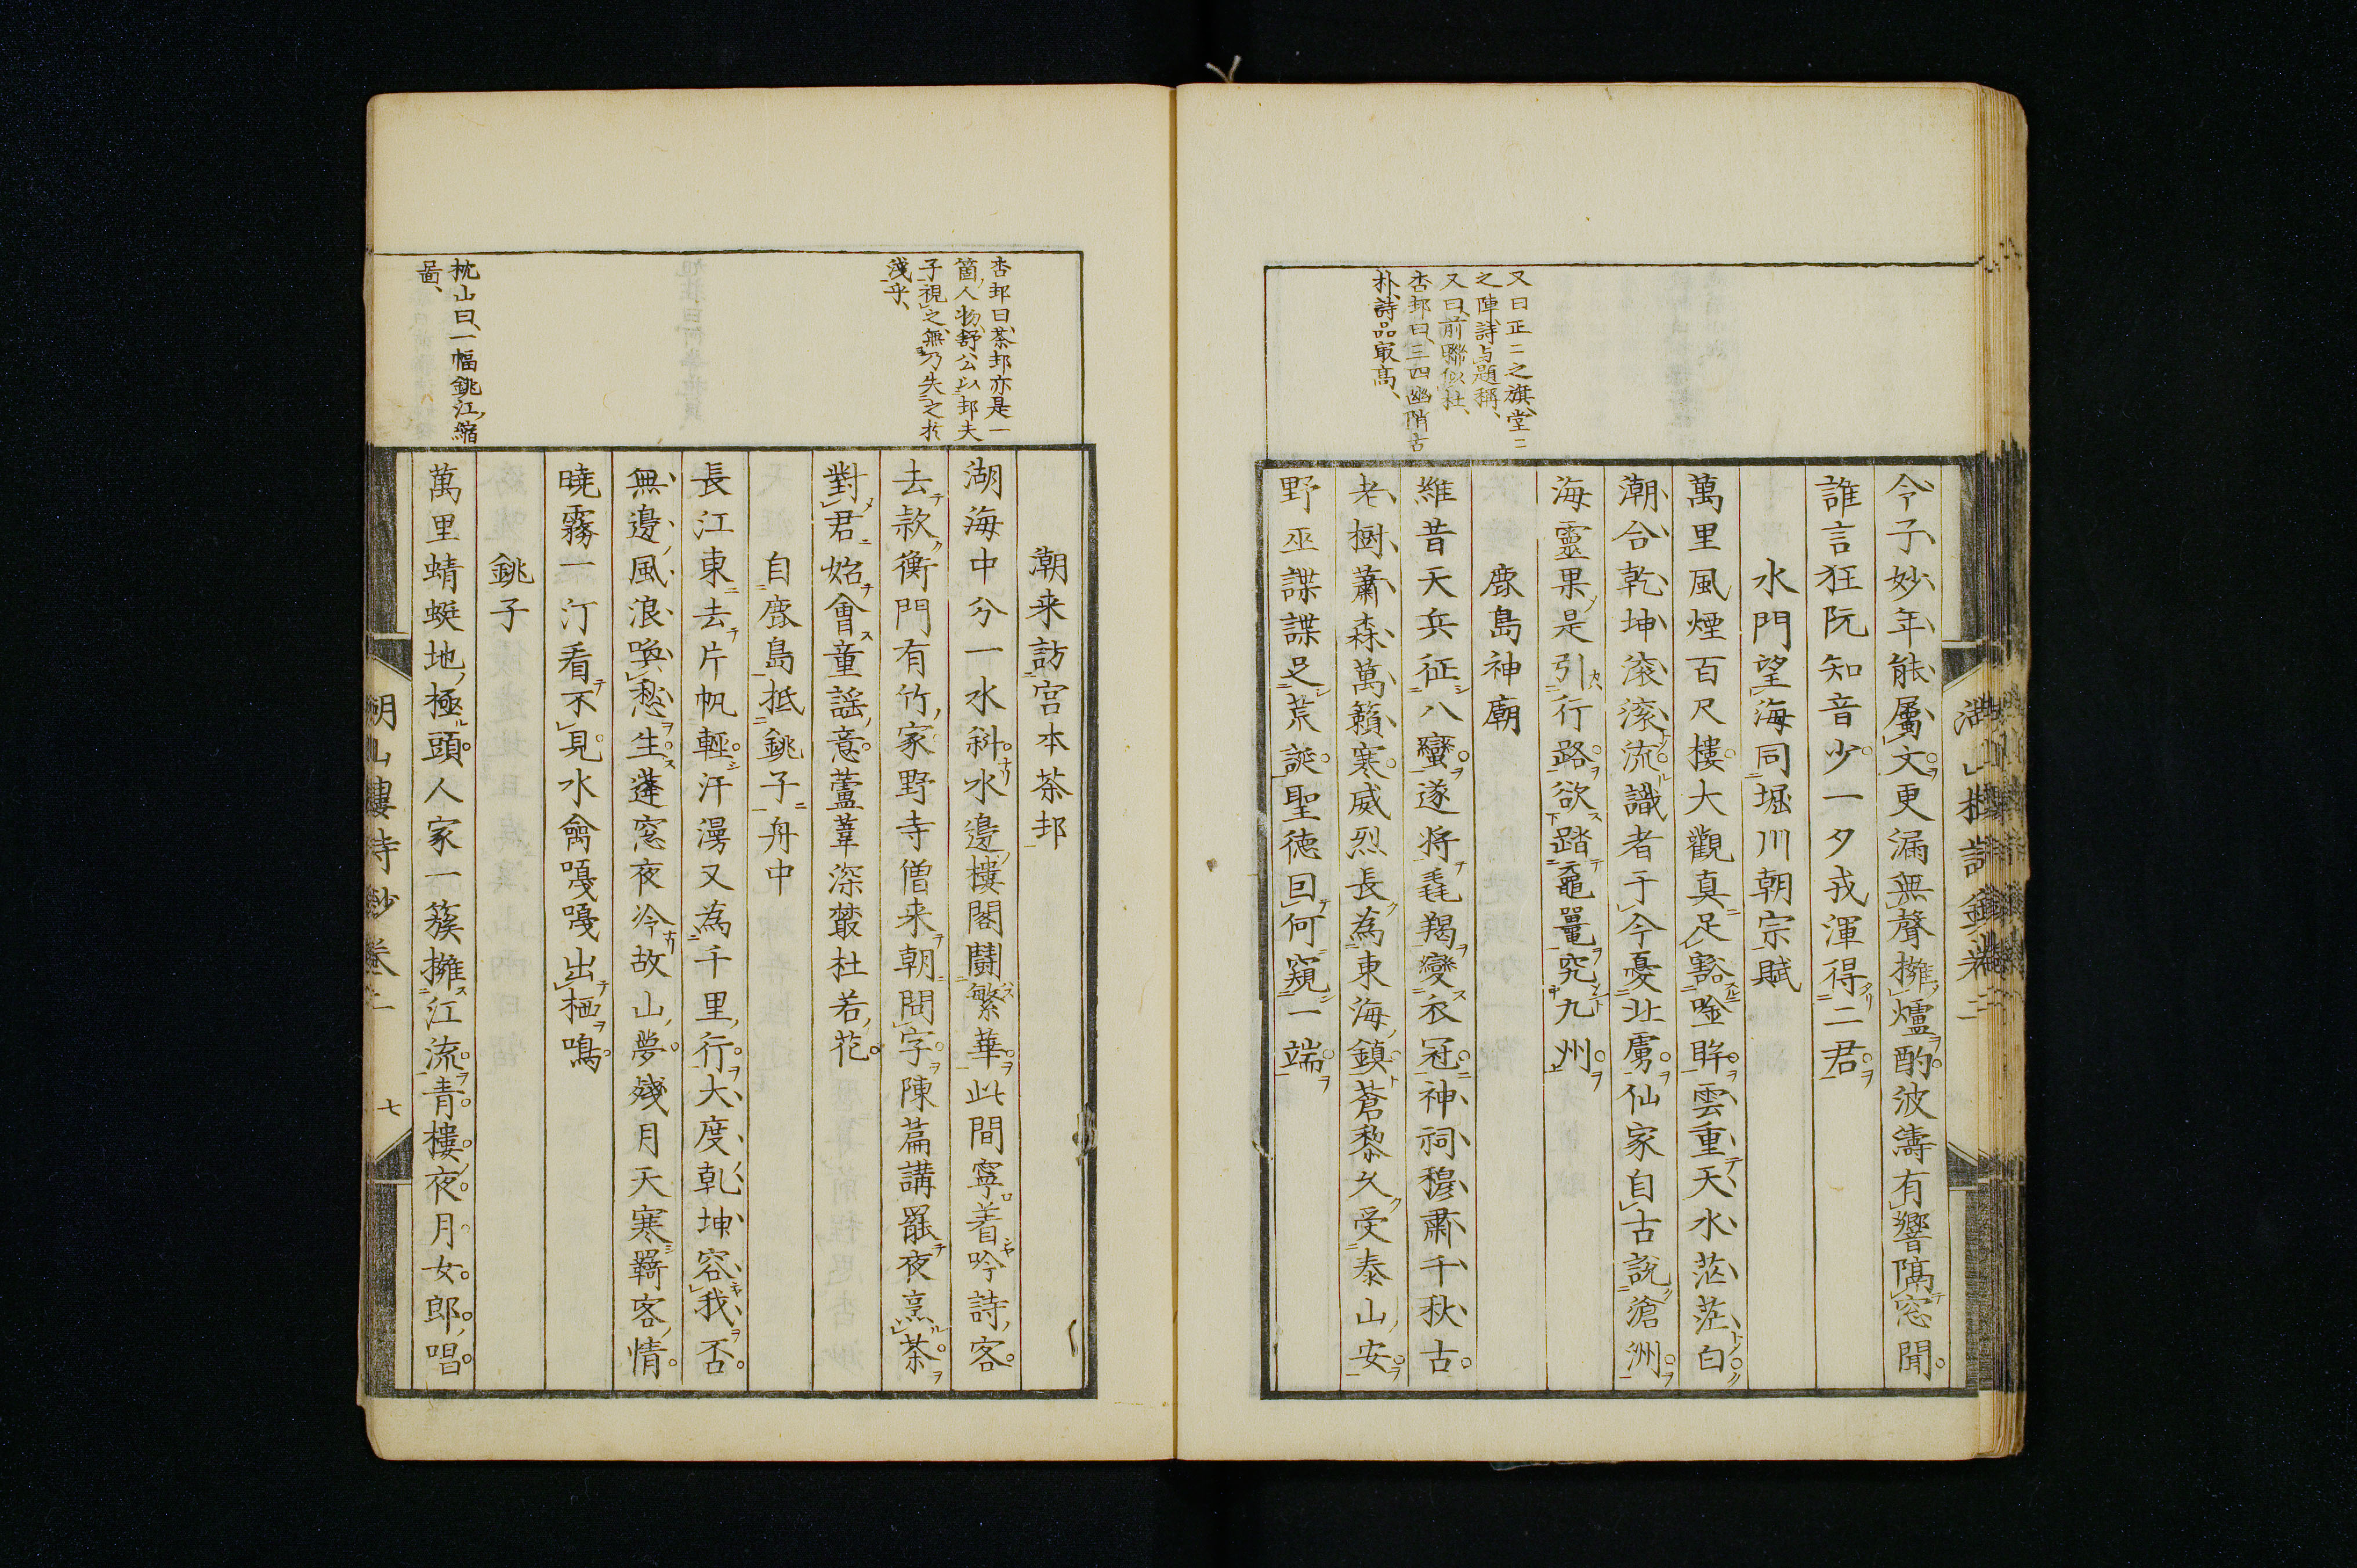 又曰正〻之旗堂〻
之陣詩与題稱
又曰前聯似杜
杏邨曰三四幽峭古
朴詩品最高
令子妙年能屬文更漏無聲擁爐酌波濤有響隔窓聞
誰言狂阮知音少一夕我渾得二君
水門望海同堀川朝宗賦
萬里風煙百尺樓大觀真足豁吟眸雲重天水茫茫白
潮合乾坤滾滾流識者于今憂北虜仙家自古說滄洲
海靈果是引行路欲踏黿鼉究九州
鹿島神廟
維昔天兵征八蠻遂將毳羯變衣冠神祠穆肅千秋古
老樹蕭森萬籟寒威烈長為東海鎮蒼黎久受泰山安
野巫諜諜足荒誕聖德回何窺一端
杏邨曰茶邨亦是一
箇人物舒公以邨夫
子視之無乃失之於
淺乎
枕山曰一幅銚江縮
圖
潮来訪宮本茶邨
湖海中分一水斜水邊樓閣鬪繁華此間寧着吟詩客
去款衡門有竹家野寺僧来朝問字陳篇講罷夜烹茶
對君始會童謠意蘆葦深叢杜若花
自鹿島抵銚子舟中
長江東去片帆輕汗漫又為千里行大度乾坤容我否
無邊風浪喚愁生蓬窓夜冷故山夢殘月天寒羇客情
曉霧一汀看不見水禽嘎嘎出栖鳴
銚子
萬里蜻蜓地極頭人家一簇擁江流青樓夜月女郎唱
湖山樓詩鈔卷二
七